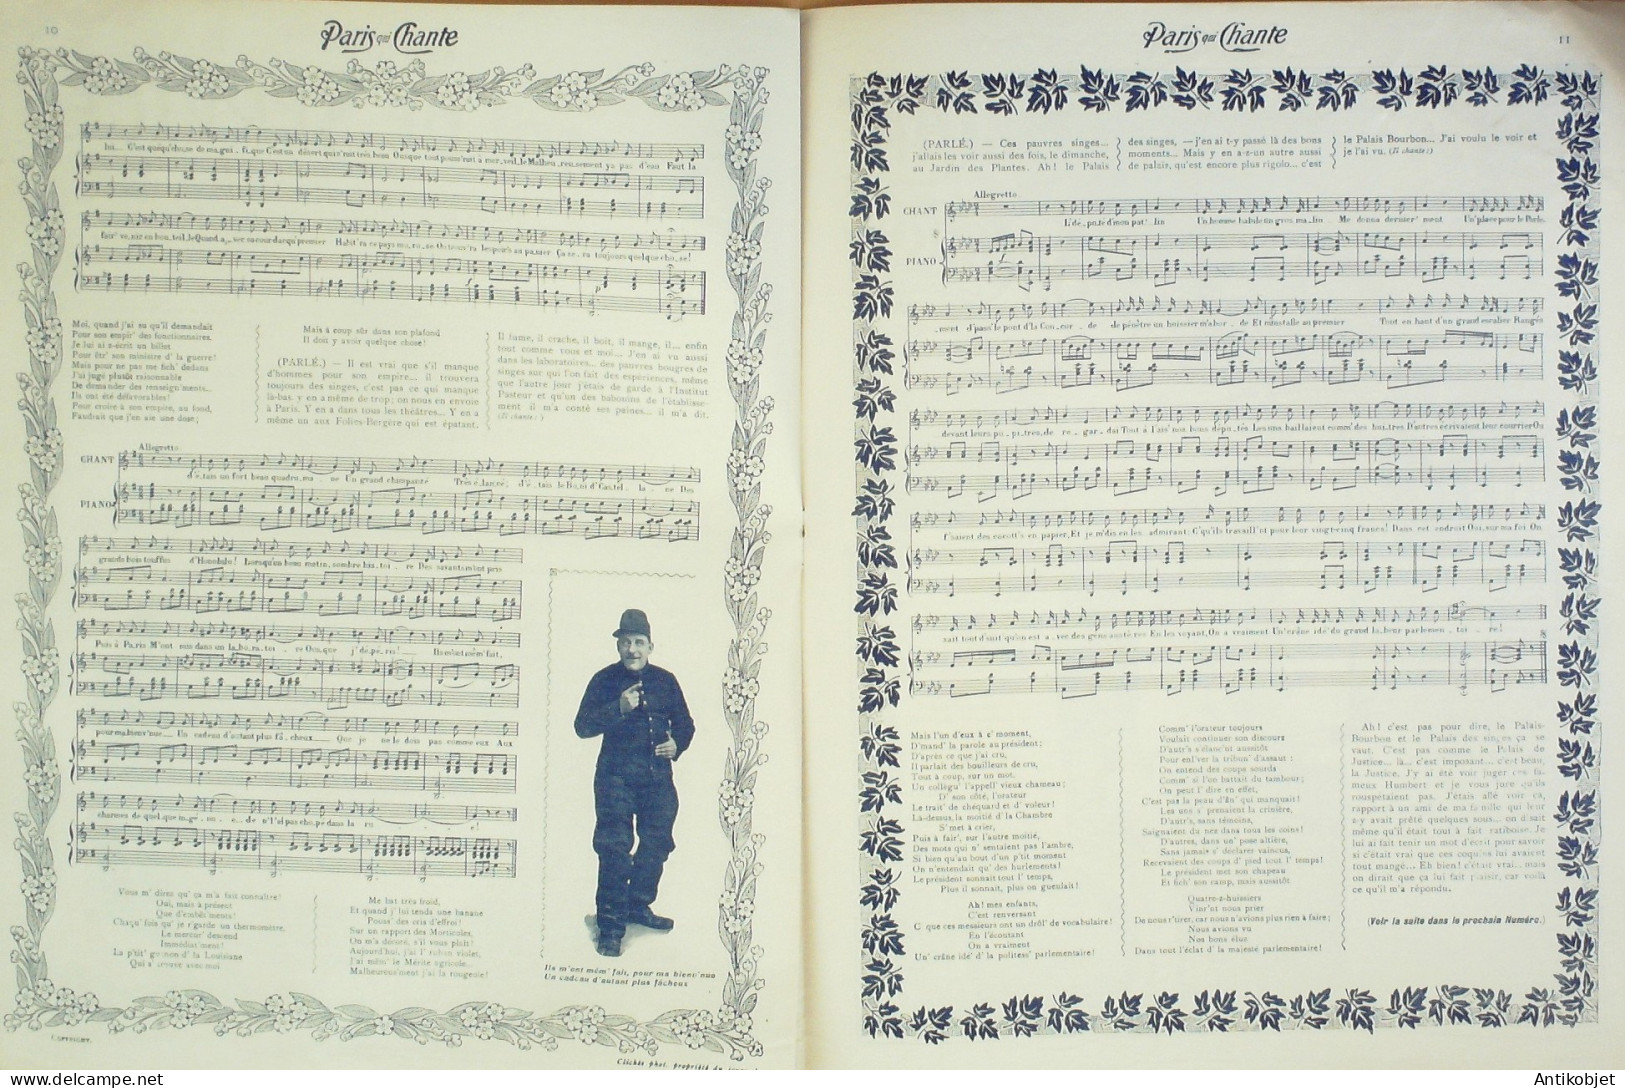 10
Paris qui Chante
Moi, quand j'ai su qu'il demandait
Pour son empir' des fonctionnaires,
Je lui ai z-écrit un billet
Pour êtr' son ministre d' la guerre!
Mais pour ne pas me fich' dedans
J'ai jugé plutôt raisonnable
De demander des renseign'ments...
Ils ont été défavorables!
Pour croire à son empire, au fond,
Faudrait que j'en aie une dose;
Mais à coup sûr dans son plafond
Il doit y avoir quelque chose!
(PARLÉ.) — Il est vrai que s'il manque
d'hommes pour son empire... il trouvera
toujours des singes, c'est pas ce qui manque
là-bas. y en a même de trop; on nous en envoie
à Paris. Y en a dans tous les théâtres... Y en a
même un aux Folies-Bergère qui est épatant.
Il fume, il crache, il boit, il mange, il... enfin
tout comme vous et moi... J'en ai vu aussi
dans les laboratoires... des pauvres bougres de
singes sur qui l'on fait des expériences, même
que l'autre jour j'étais de garde à l'Institut
Pasteur et qu'un des babouins de l'établisse-
ment il m'a conté ses peines... il m'a dit.
(Il chante:)
Allegretto
CHANT
PIANO
J'é_tais un fort beau quadru_ma_ne Un grand chimpanzé Très é_lancé; J'é_tais le Boni d'Cas_tel_la_ne Des
grands bois touffus d'Honolulu! Lorsqu'un beau matin, sombre his_toi_re Des savants m'ont pris
Puis à Pa_ris M'ont mis dans un la_bo_ra_toi_re Ous_que j'dé_péris! Ils m'ont mêm' fait,
pour ma bienv'nue Un cadeau d'autant plus fâ_cheux Que je ne le dois pas comme eux Aux
charmes de quel_que
Vous m' direz qu' ça m'a fait connaître!
Oui, mais à présent
Que d'embêt'ments!
Chaqu' fois qu' je r'garde un thermomètre,
Le mercur' descend
Immédiat'ment!
La p'tit' guenon d' la Louisiane
Qui s' trouve avec moi
Me bat très froid,
Et quand j' lui tends une banane
Pouss' des cris d'effroi!
Sur un rapport des Morticoles,
On m'a décoré, s'il vous plaît!
Aujourd'hui, j'ai l' ruban violet,
J'ai mêm' le Mérite agricole...
Malheureus'ment j'ai la rougeole!
Ils m'ont mêm' fait, pour ma bienv'nue
Un cadeau d'autant plus fâcheux
COPYRIGHT.
Clichés phot. propriété du
11
Paris qui Chante
(PARLÉ.) — Ces pauvres singes...
j'allais les voir aussi des fois, le dimanche,
au Jardin des Plantes. Ah! le Palais
des singes, — j'en ai t-y passé là des bons
moments... Mais y en a-z-un autre aussi
de palair, qu'est encore plus rigolo... c'est
le Palais Bourbon... J'ai voulu le voir et
je l'ai vu. (Il chante:)
Allegretto
CHANT
PIANO
L'dé_pu_té d'mon pat'lin Un homme habile un gros ma_lin Me donna dernièr'ment Un' place pour le Parle_
_ment J'pass' le pont d'la Con_cor_de Je pénètre un huissier m'abor_de Et m'installe au premier Tout en haut d'un grand escalier Rangés
devant leurs pu_pi_tres, Je re_gar_dai Tout à l'ais' nos bons dépu_tés Les uns baillaient comm' des huî_tres D'autres écrivaient leur courrier Ou
f'saient des cocott's en papier, Et je m'dis en les admirant: C'qu'ils travaill'nt pour leur vingt-cinq francs! Dans cet endroit Oui, sur ma foi On
sait tout d'suit' qu'on est a_vec des gens austè_res En les voyant, On a vraiment Un' crâne idé' du grand la_beur parlemen_tai_re!
Mais l'un d'eux à c' moment,
D'mand' la parole au président;
D'après ce que j'ai cru,
Il parlait des bouilleurs de cru,
Tout à coup, sur un mot,
Un collègu' l'appell' vieux chameau;
D' son côté, l'orateur
Le trait' de chéquard et d' voleur!
Là-dessus, la moitié d' la Chambre
S' met à crier,
Puis à fair', sur l'autre moitié,
Des mots qui n' sentaient pas l'ambre,
Si bien qu'au bout d'un p'tit moment
On n'entendait qu' des hurlements!
Le président sonnait tout l' temps,
Plus il sonnait, plus on gueulait!
Ah! mes enfants,
C'est renversant
C' que ces messieurs ont un drôl' de vocabulaire!
En l'écoutant
On a vraiment
Un' crâne idé' d' la politess' parlementaire!
Comm' l'orateur toujours
Voulait continuer son discours
D'autr's s'élanc'nt aussitôt
Pour enl'ver la tribun' d'assaut:
On entend des coups sourds
Comm' si l'on battait du tambour;
On peut l' dire en effet,
C'est pas la peau d'ân' qui manquait!
Les uns s' prenaient la crinière,
D'autr's, sans témoins,
Saignaient du nez dans tous les coins!
D'autres, dans un' pose altière,
Sans jamais s' déclarer vaincus,
Recevaient des coups d' pied tout l' temps!
Le président met son chapeau
Et fich' son camp, mais aussitôt
Quatre-z-huissiers
Vinr'nt nous prier
De nous r'tirer, car nous n'avions plus rien à faire;
Nous avions vu
Nos bons élus
Dans tout l'éclat d' la majesté parlementaire!
Ah! c'est pas pour dire, le Palais-
Bourbon et le Palais des singes ça se
vaut. C'est pas comme le Palais de
Justice... là... c'est imposant... c'est beau,
la Justice. J'y ai été voir juger ces fa-
meux Humbert et je vous jure qu'ils
rouspétaient pas. J'étais allé voir ça,
rapport à un ami de ma famille qui leur
a-y avait prêté quelques sous... on disait
même qu'il était tout à fait ratiboisé. Je
lui ai fait tenir un mot d'écrit pour savoir
si c'était vrai que ces coquins lui avaient
tout mangé... Eh bien! c'était vrai... mais
on dirait que ça lui fait plaisir, car voilà
ce qu'il m'a répondu.
(Voir la suite dans le prochain Numéro.)
Antikobjet